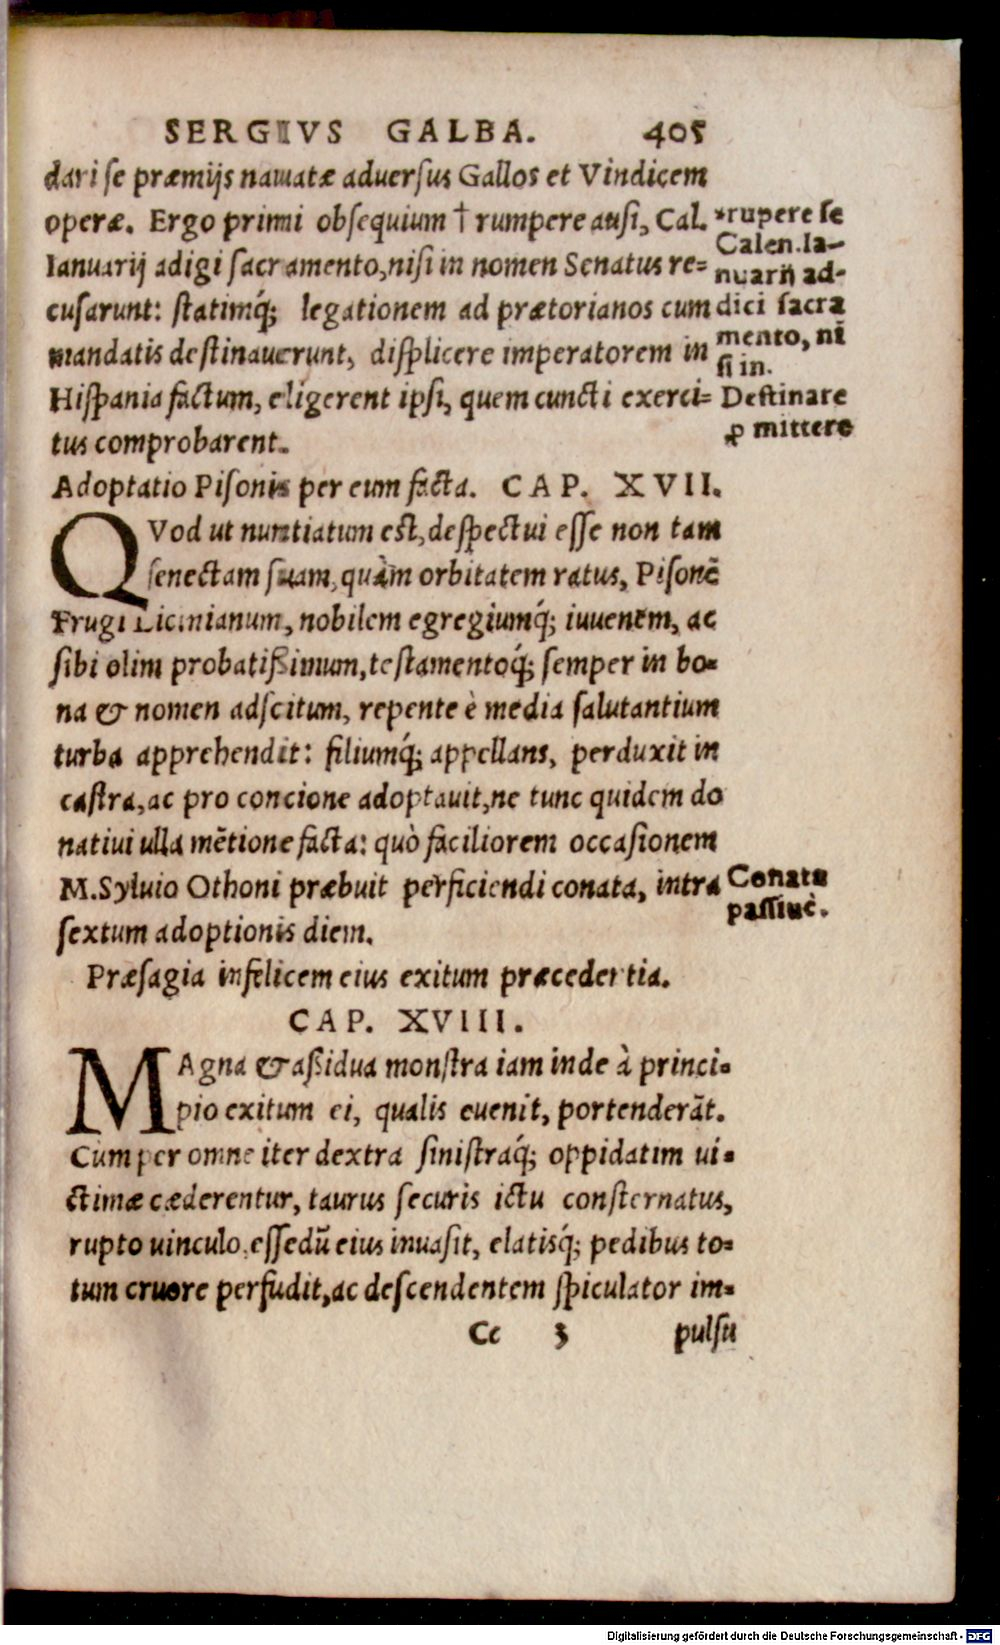 SERGIVS GALBA. 405
dari se præmijs nauatæ aduersus Gallos et Vindicem
operæ. Ergo primi obsequium † rumpere ausi, Cal.
Ianuarij adigi sacramento, nisi in nomen Senatus re-
cusarunt: statimq́; legationem ad prætorianos cum
mandatis destinauerunt, displicere imperatorem in
Hispania factum, eligerent ipsi, quem cuncti exerci-
tus comprobarent.
*rupere se
Calen.Ia-
nuarij ad-
dici sacra
mento, ni
si in.
Destinare
ꝓ mittere
Adoptatio Pisonis per eum facta. CAP. XVII.
QVod ut nuntiatum est, despectui esse non tam
senectam suam, quàm orbitatem ratus, Pisonē
Frugi Licinianum, nobilem egregiumq́; iuuenem, ac
sibi olim probatißimum, testamentoq́; semper in bo-
na & nomen adscitum, repente è media salutantium
turba apprehendit: filiumq́; appellans, perduxit in
castra, ac pro concione adoptauit, ne tunc quidem do
natiui ulla mētione facta: quò faciliorem occasionem
M.Syluio Othoni præbuit perficiendi conata, intra
sextum adoptionis diem.
Conata
passiuè.
Præsagia infelicem eius exitum præcedentia.
CAP. XVIII.
MAgna & aßidua monstra iam inde à princi-
pio exitum ei, qualis euenit, portenderāt.
Cum per omne iter dextra sinistraq́; oppidatim ui-
ctimæ cæderentur, taurus securis ictu consternatus,
rupto uinculo, essedū eius inuasit, elatisq́; pedibus to-
tum cruore perfudit, ac descendentem spiculator im-
Cc 3 pulsu
Digitalisierung gefördert durch die Deutsche Forschungsgemeinschaft - DFG